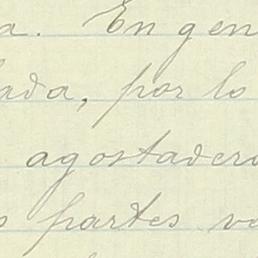 a. En gen
ada, por lo
agostadero
s partes va